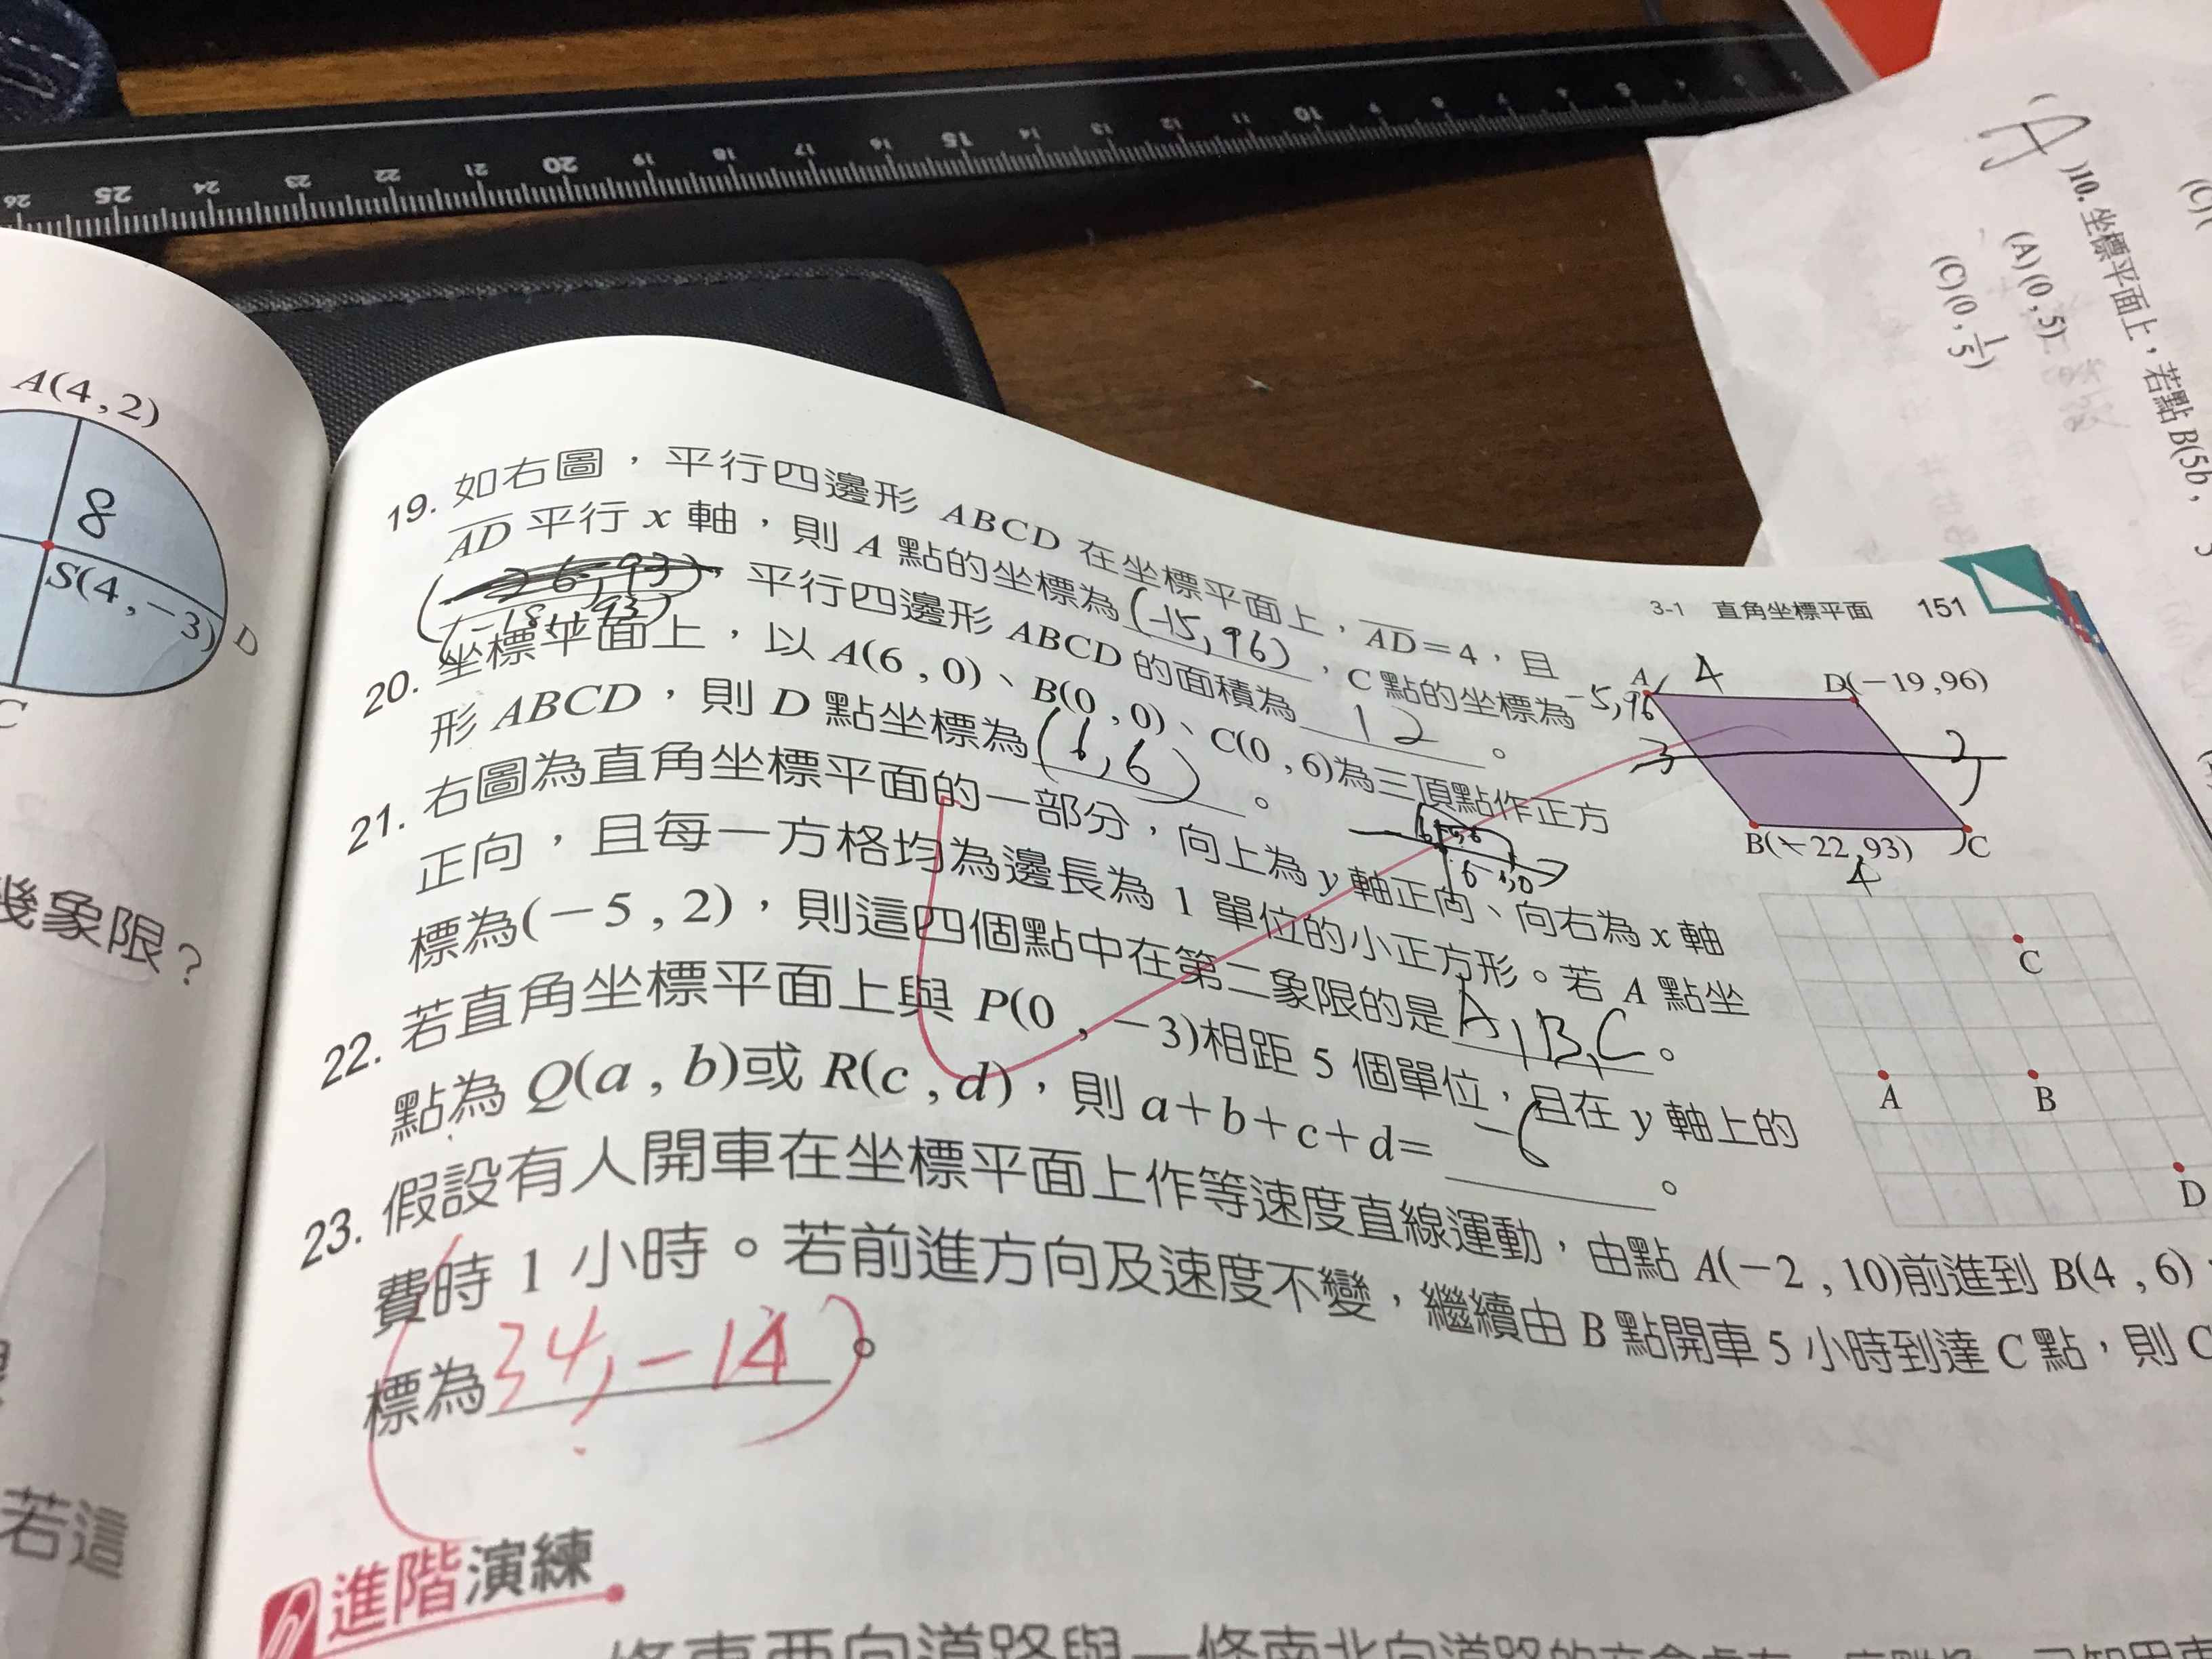 26 25 24 23 22 21 20 19 18 17 16 15 14 13 12 11 10 9 8 7 6 5 4 3 2
A(4,2)
8
S(4,-3)
D
C
幾象限?
若這
3-1 直角坐標平面 151
19. 如右圖,平行四邊形 ABCD 在坐標平面上,AD=4,且
AD 平行 x 軸,則 A 點的坐標為(-15,96),C 點的坐標為
(-18,93),平行四邊形 ABCD 的面積為 12 。
20. 坐標平面上,以 A(6,0)、B(0,0)、C(0,6)為三頂點作正方
形 ABCD,則 D 點坐標為(6,6)。
21. 右圖為直角坐標平面的一部分,向上為 y 軸正向、向右為 x 軸
正向,且每一方格均為邊長為 1 單位的小正方形。若 A 點坐
標為(-5,2),則這四個點中在第二象限的是A,B,C。
22. 若直角坐標平面上與 P(0,-3)相距 5 個單位,且在 y 軸上的
點為 Q(a,b)或 R(c,d),則 a+b+c+d= -6 。
23. 假設有人開車在坐標平面上作等速度直線運動,由點 A(-2,10)前進到 B(4,6)
費時 1 小時。若前進方向及速度不變,繼續由 B 點開車 5 小時到達 C 點,則 C
標為(34,-14)。
A 4 D(-19,96)
-5,96
3
B(-22,93) C
4
C
A B
D
進階演練
)10. 坐標平面上,若點 B(5b,
(A)(0,5)
(C)(0,1/5)
(C)